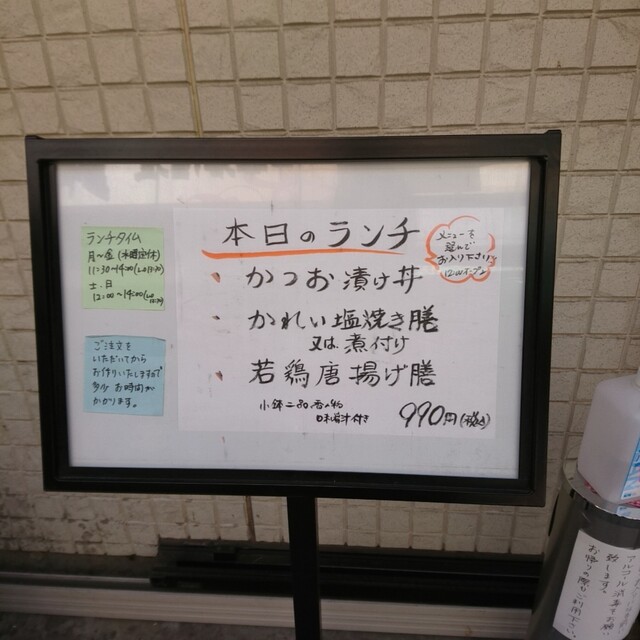 本日のランチ
メニューを
選んで
お入り下さい
12:00オープン
かつお漬け丼
かれい塩焼き膳
又は煮付け
若鶏唐揚げ膳
小鉢二品、香の物
味噌汁付き
990円(税込)
ランチタイム
月〜金(木曜定休)
11:30〜14:00(Lo13:30)
土・日
12:00〜14:00(Lo
13:30)
ご注文を
いただいてから
お作りいたしますので
多少お時間が
かかります。
アルコール消毒をお願い
致します
お帰りの際もご利用下さい